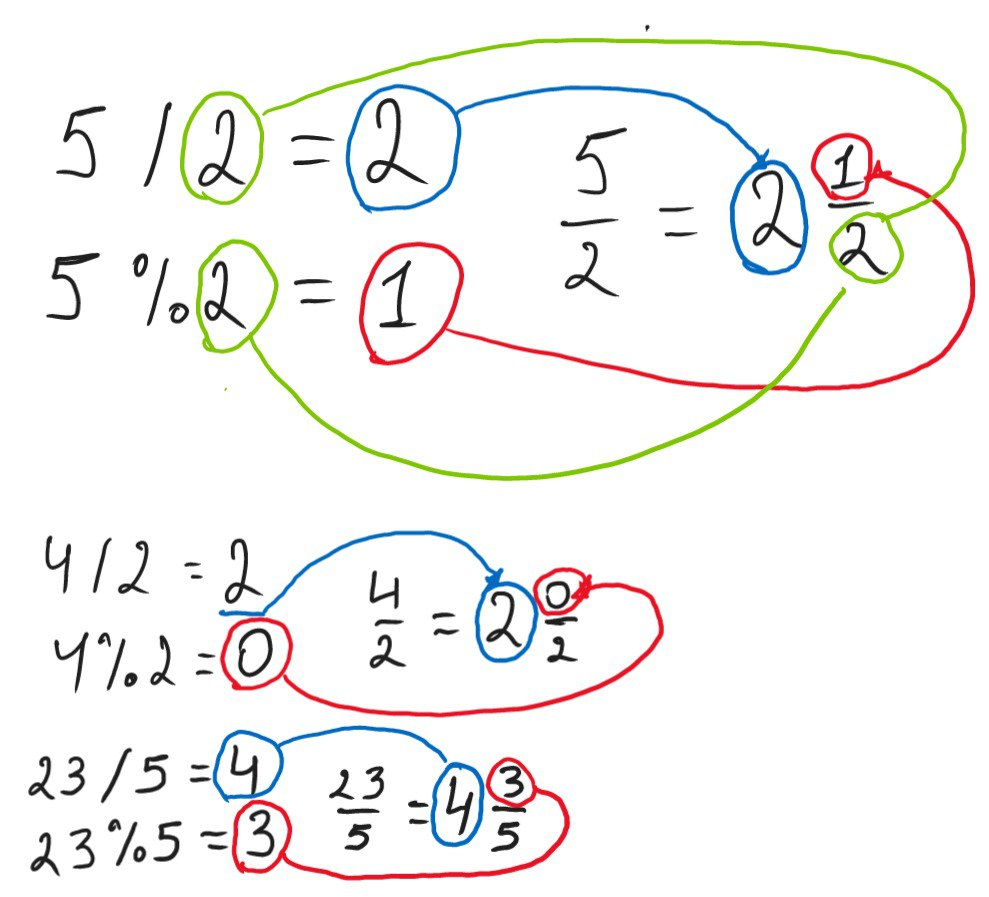 5 / 2 = 2
5 % 2 = 1
5/2 = 2 1/2
4 / 2 = 2
4 % 2 = 0
4/2 = 2 0/2
23 / 5 = 4
23 % 5 = 3
23/5 = 4 3/5